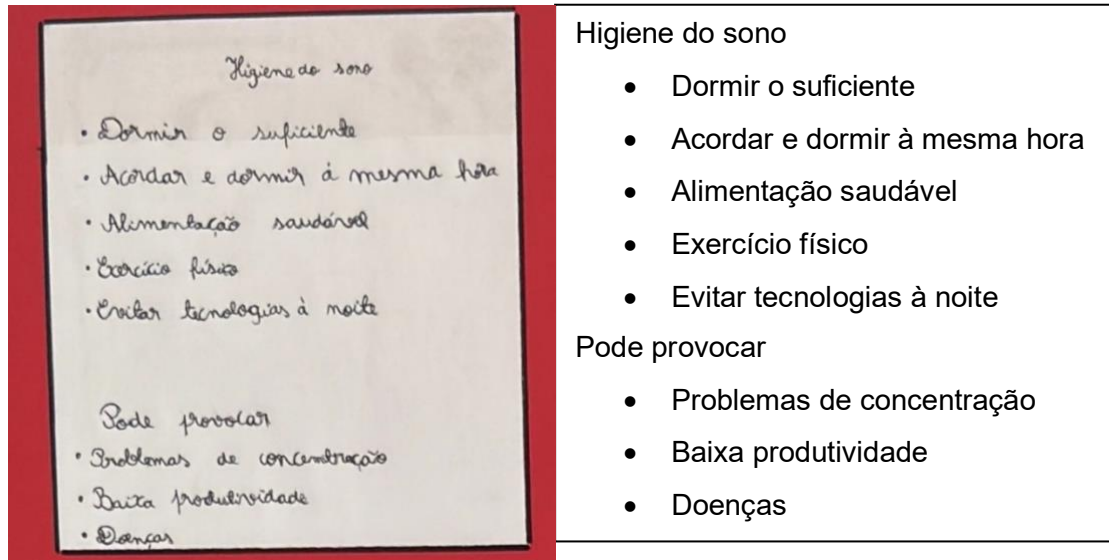 Higiene do sono
• Dormir o suficiente
• Acordar e dormir á mesma hora
• Alimentação saudável
• Exercício físico
• Evitar tecnologias à noite
Pode provocar
• Problemas de concentração
• Baixa produtividade
• Doenças
Higiene do sono
• Dormir o suficiente
• Acordar e dormir à mesma hora
• Alimentação saudável
• Exercício físico
• Evitar tecnologias à noite
Pode provocar
• Problemas de concentração
• Baixa produtividade
• Doenças